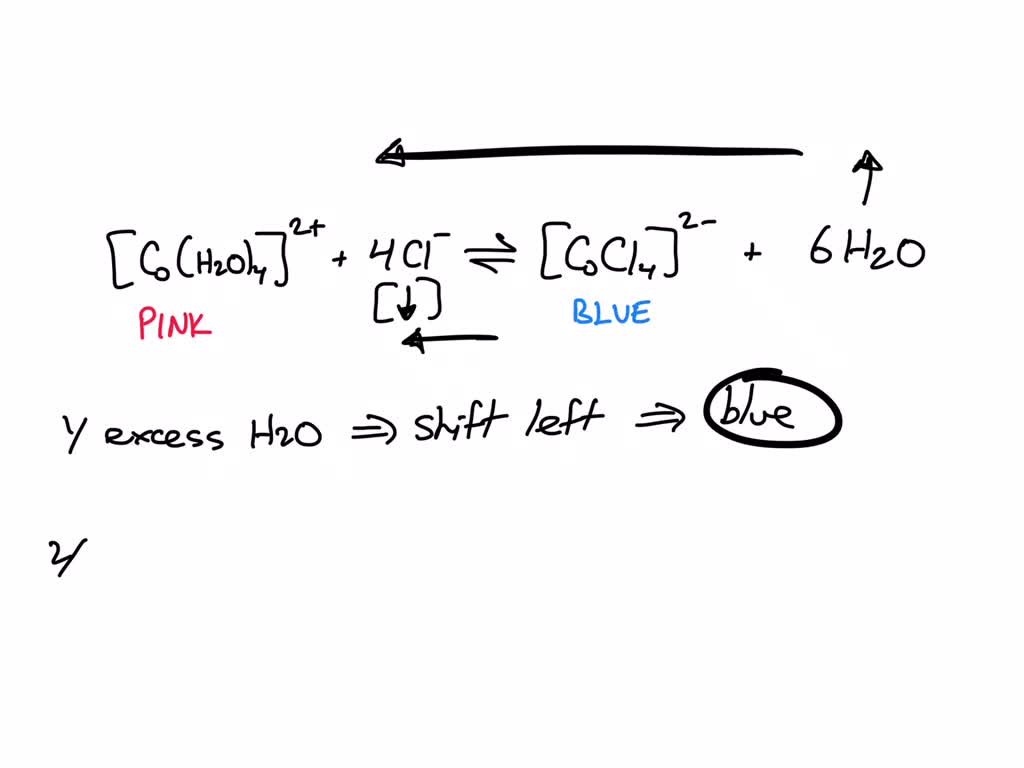 [Co(H2O)4]2+ + 4Cl- ⇌ [CoCl4]2- + 6H2O
PINK [↓] BLUE
1/ excess H2O ⇒ shift left ⇒ blue
2/